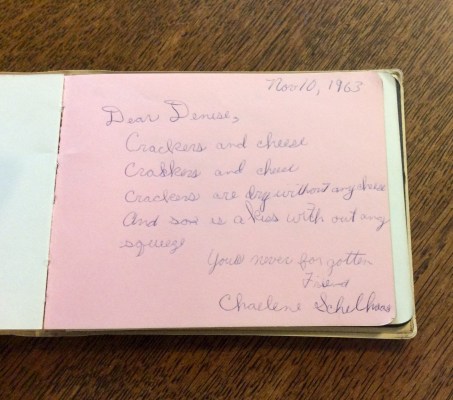 Nov 10, 1963
Dear Denise,
Crackers and cheese
Crakkers and cheese
Crackers are dry without any cheese
And soe is a kiss with out any
squeeze
Youl never forgotten
Friend
Charlene Schelhaas